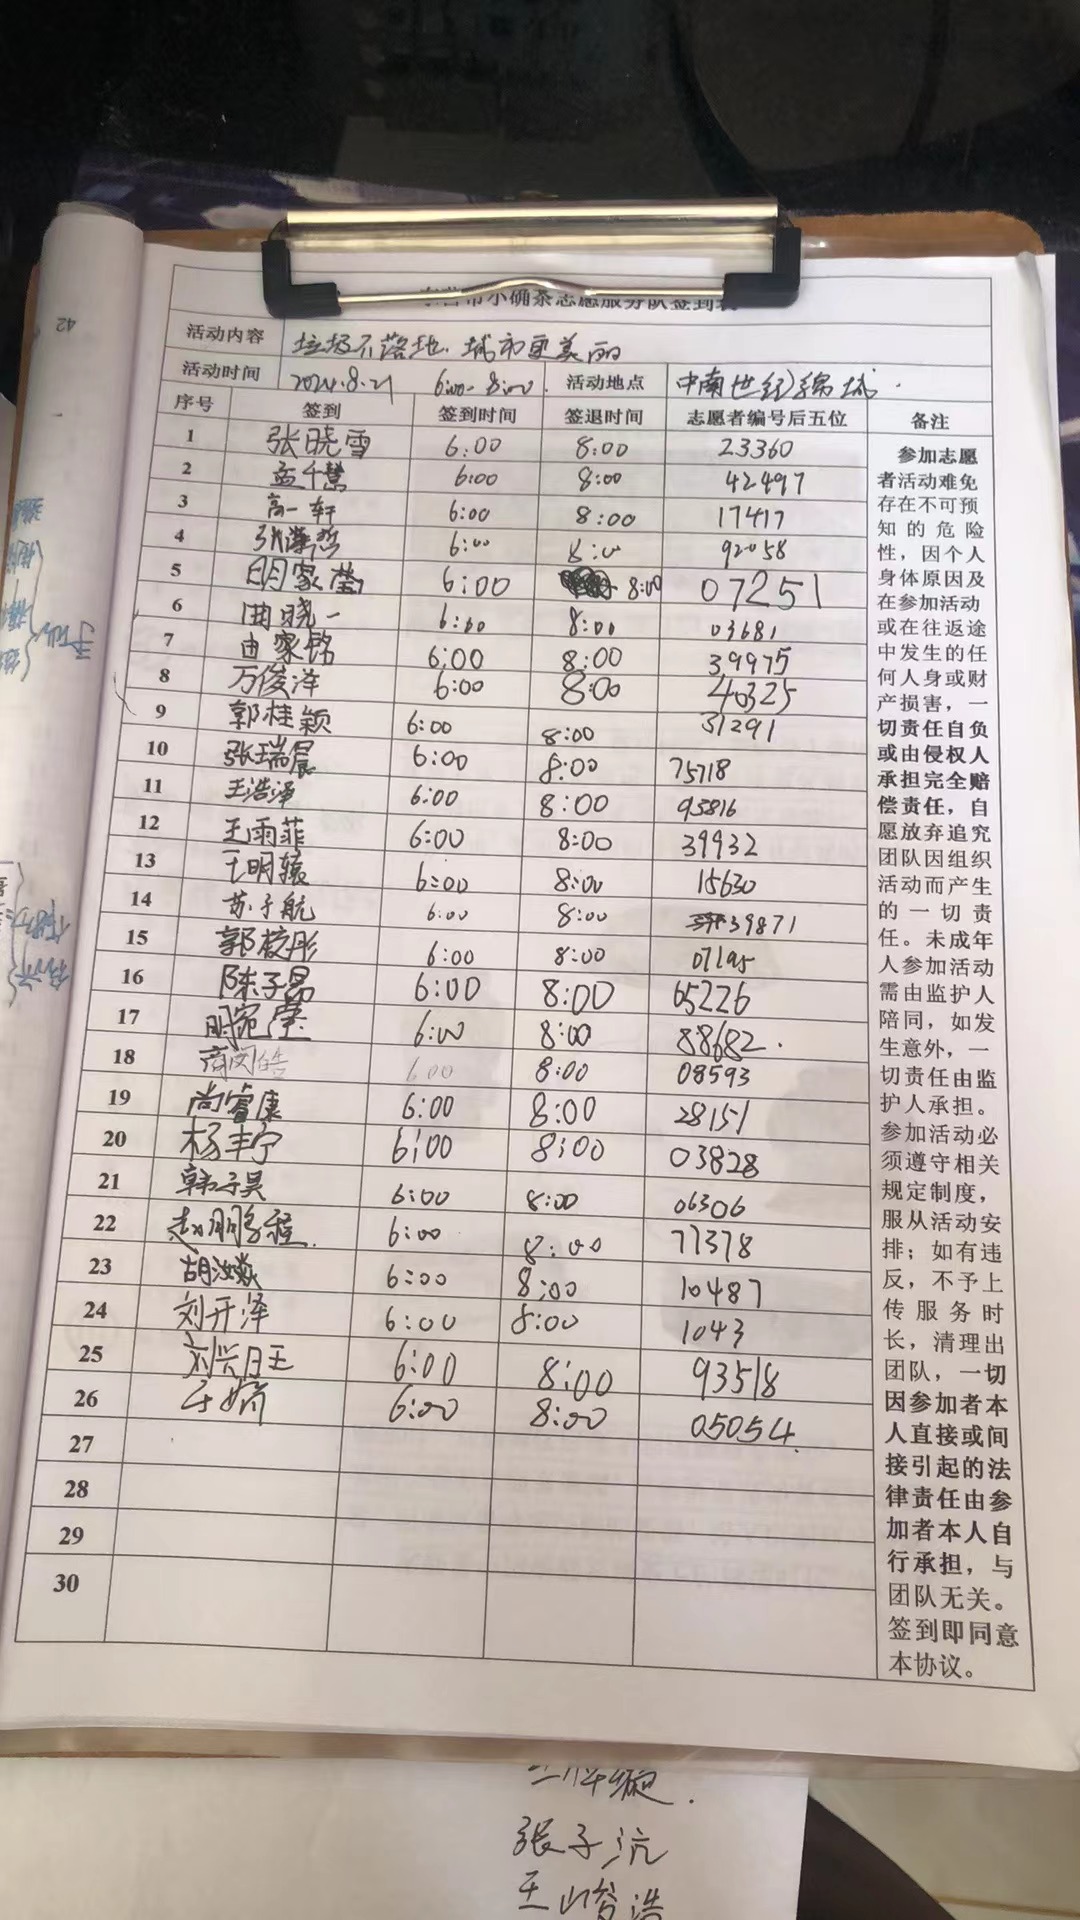 小确茶志愿服务队签到表
活动内容 垃圾不落地.城市更美丽
活动时间 2024.8.21 6:00-8:00. 活动地点 中南世纪锦城.
序号 签到 签到时间 签退时间 志愿者编号后五位 备注
1 张晓雪 6:00 8:00 23360
2 孟千慧 6:00 8:00 42497
3 高一轩 6:00 8:00 17417
4 张潇哲 6:00 8:00 92058
5 明家莹 6:00 8:00 07251
6 曲晓一 6:00 8:00 03681
7 由家铭 6:00 8:00 39975
8 万俊泽 6:00 8:00 40325
9 郭桂颖 6:00 8:00 31291
10 张瑞晨 6:00 8:00 75718
11 王浩泽 6:00 8:00 93816
12 王雨菲 6:00 8:00 39932
13 王明辕 6:00 8:00 15630
14 苏子航 6:00 8:00 39871
15 郭校彤 6:00 8:00 07195
16 陈子昂 6:00 8:00 65226
17 明宛莹 6:00 8:00 88682.
18 商闵皓 6:00 8:00 08593
19 尚睿康 6:00 8:00 28151
20 杨丰宁 6:00 8:00 03828
21 韩子昊 6:00 8:00 06306
22 赵鹏程. 6:00 8:00 77378
23 胡汝焱 6:00 8:00 10487
24 刘开泽 6:00 8:00 1043
25 刘兴日王 6:00 8:00 93518
26 于婧 6:00 8:00 05054.
27
28
29
30
参加志愿
者活动难免
存在不可预
知的危险
性，因个人
身体原因及
在参加活动
或在往返途
中发生的任
何人身或财
产损害，一
切责任自负
或由侵权人
承担完全赔
偿责任，自
愿放弃追究
团队因组织
活动而产生
的一切责
任。未成年
人参加活动
需由监护人
陪同，如发
生意外，一
切责任由监
护人承担。
参加活动必
须遵守相关
规定制度，
服从活动安
排；如有违
反，不予上
传服务时
长，清理出
团队，一切
因参加者本
人直接或间
接引起的法
律责任由参
加者本人自
行承担，与
团队无关。
签到即同意
本协议。
张子沆
王峻浩
42